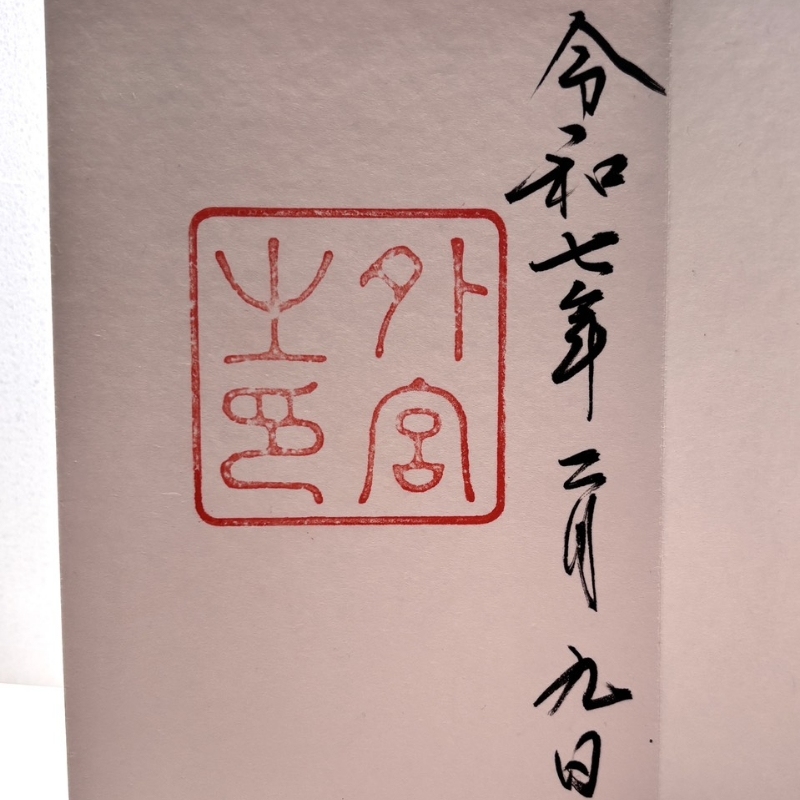 令和七年二月九日
外宮
之印